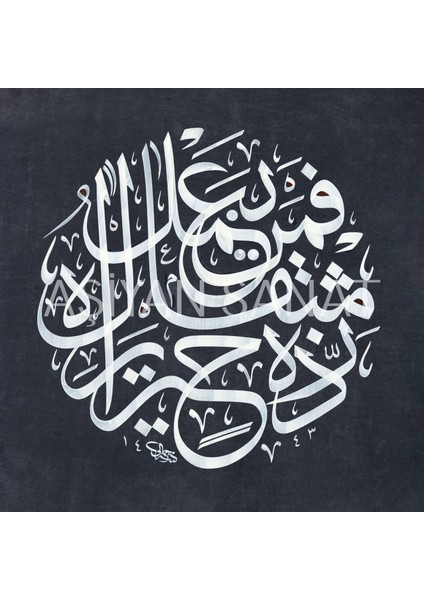 فمن يعمل
مثقال
ذرة خيرا يره
AŞİYAN SANAT
١٤ ٤٣